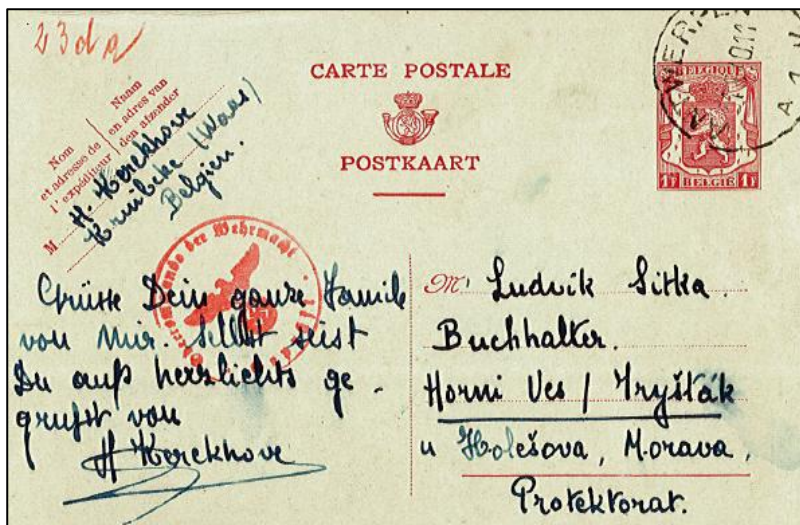 23dq
CARTE POSTALE
POSTKAART
Nom
et adresse de
l'expéditeur
Naam
en adres van
den afzender
M H. Kerckhove
Kruibeke (Waes)
Belgien.
BELGIQUE
1F BELGIË 1F
A 1 V
Oberkommando der Wehrmacht
Grüsse Dein ganze Famile
von Mir. Selbst seist
Du auf herzlichts ge-
grußt von
H Kerckhove
M Ludvík Sitka.
Buchhalter.
Horni Ves / Fryšták
u Holešova, Morava,
Protektorat.